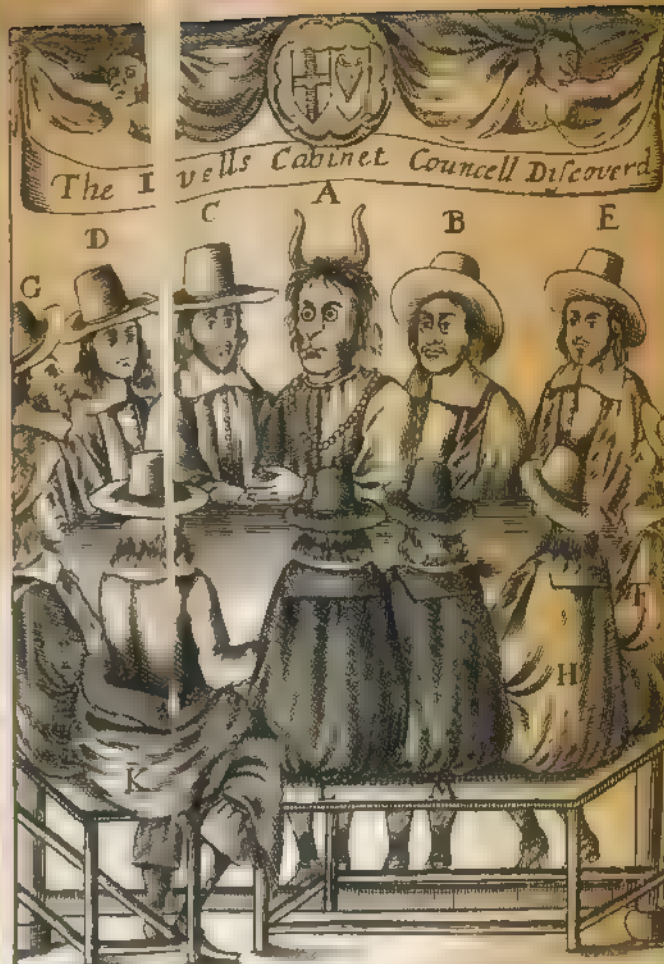 The Cabinet Councell Diſcoverd
A
C
B
E
D
G
F
H
K